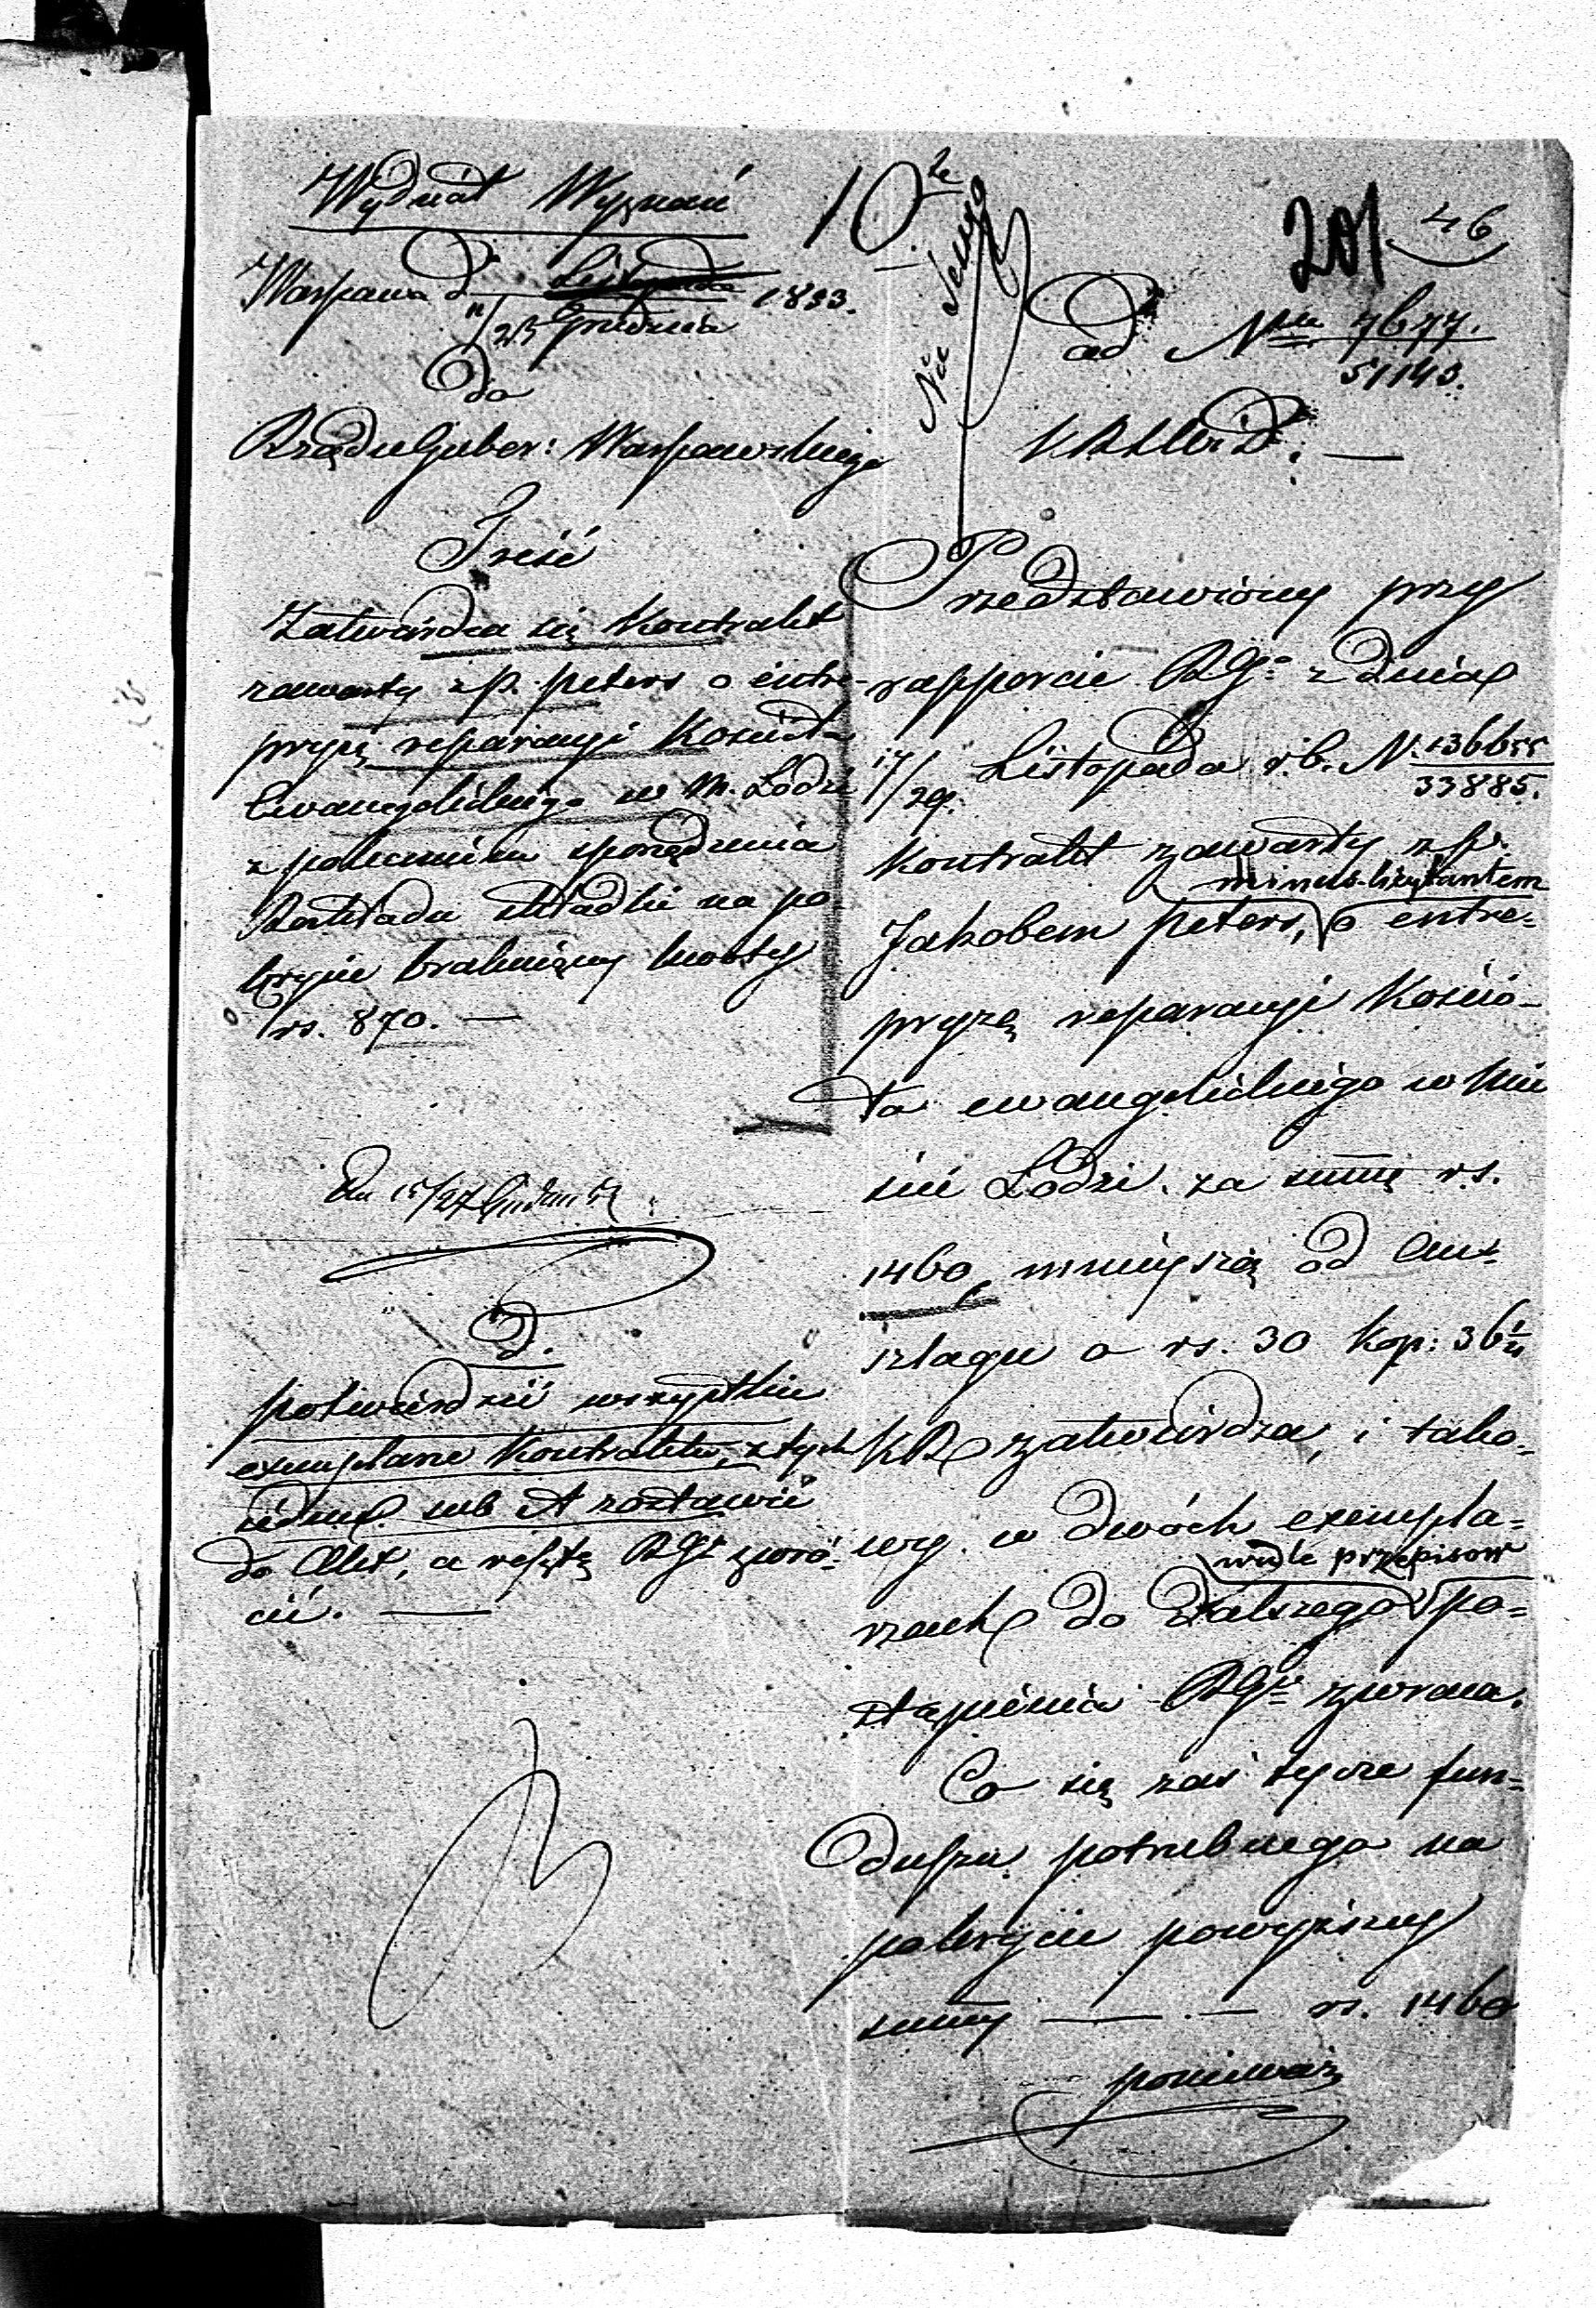 Wydział Wyznań
Warszawa d. Listopada 1853.
11/23 Grudnia
Do
Rządu Guber: Warszawskiego
Treść
Zatwierdza się Kontrakt
zawarty z p. Peters o entre-
pryzę reparacyi Kościoła
Ewangelickiego w M. Łodzi
z poleceniem sporządzenia
Rozkładu składki na po-
krycie brakującej kwoty
rs. 870. —
15/27
D.
potwierdzić wszystkie
exemplarze Kontraktu, z tych
jeden sub A zostawić
do Akt, a resztę RGu zwró-
cić. —
201 46
ad Nrm 7677.
51143.
KRSWiD. —
Przedstawiony przy
rapporcie RGo z dnia
17/29 Listopada r.b. N. 136655
33885.
Kontrakt zawarty z p.
minus-licytantem
Jakobem Peters, o entre-
pryzę reparacyi Kościo-
ła ewangelickiego w Mie
ście Łodzi za summę r.s.
1460, mniejszą od Ans-
szlagu o rs. 30 kop: 36½
KR zatwierdza, i tako-
wy w dwóch exempla-
wedle przepisow
rzach do dalszego po-
stąpienia RGu zwraca.
Co się zaś tycze fun-
duszu potrzebnego na
pokrycie powyższej
summy — . — rs. 1460
ponieważ